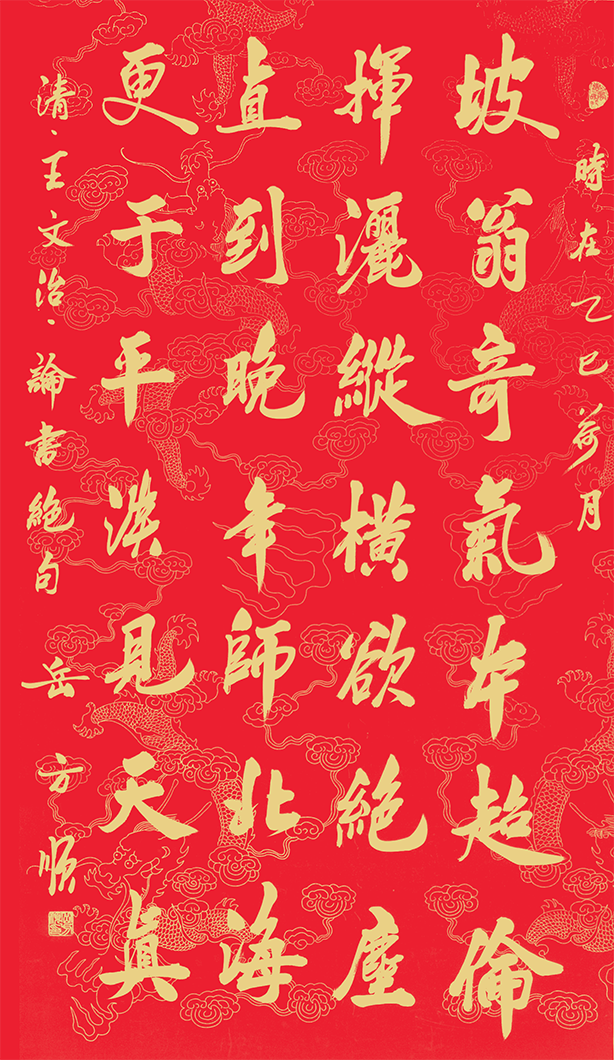 時在乙巳荷月
坡翁奇氣本超倫
揮灑縱橫欲絕塵
直到晚年師北海
更于平淡見天真
清、王文治、論書絕句 岳方順